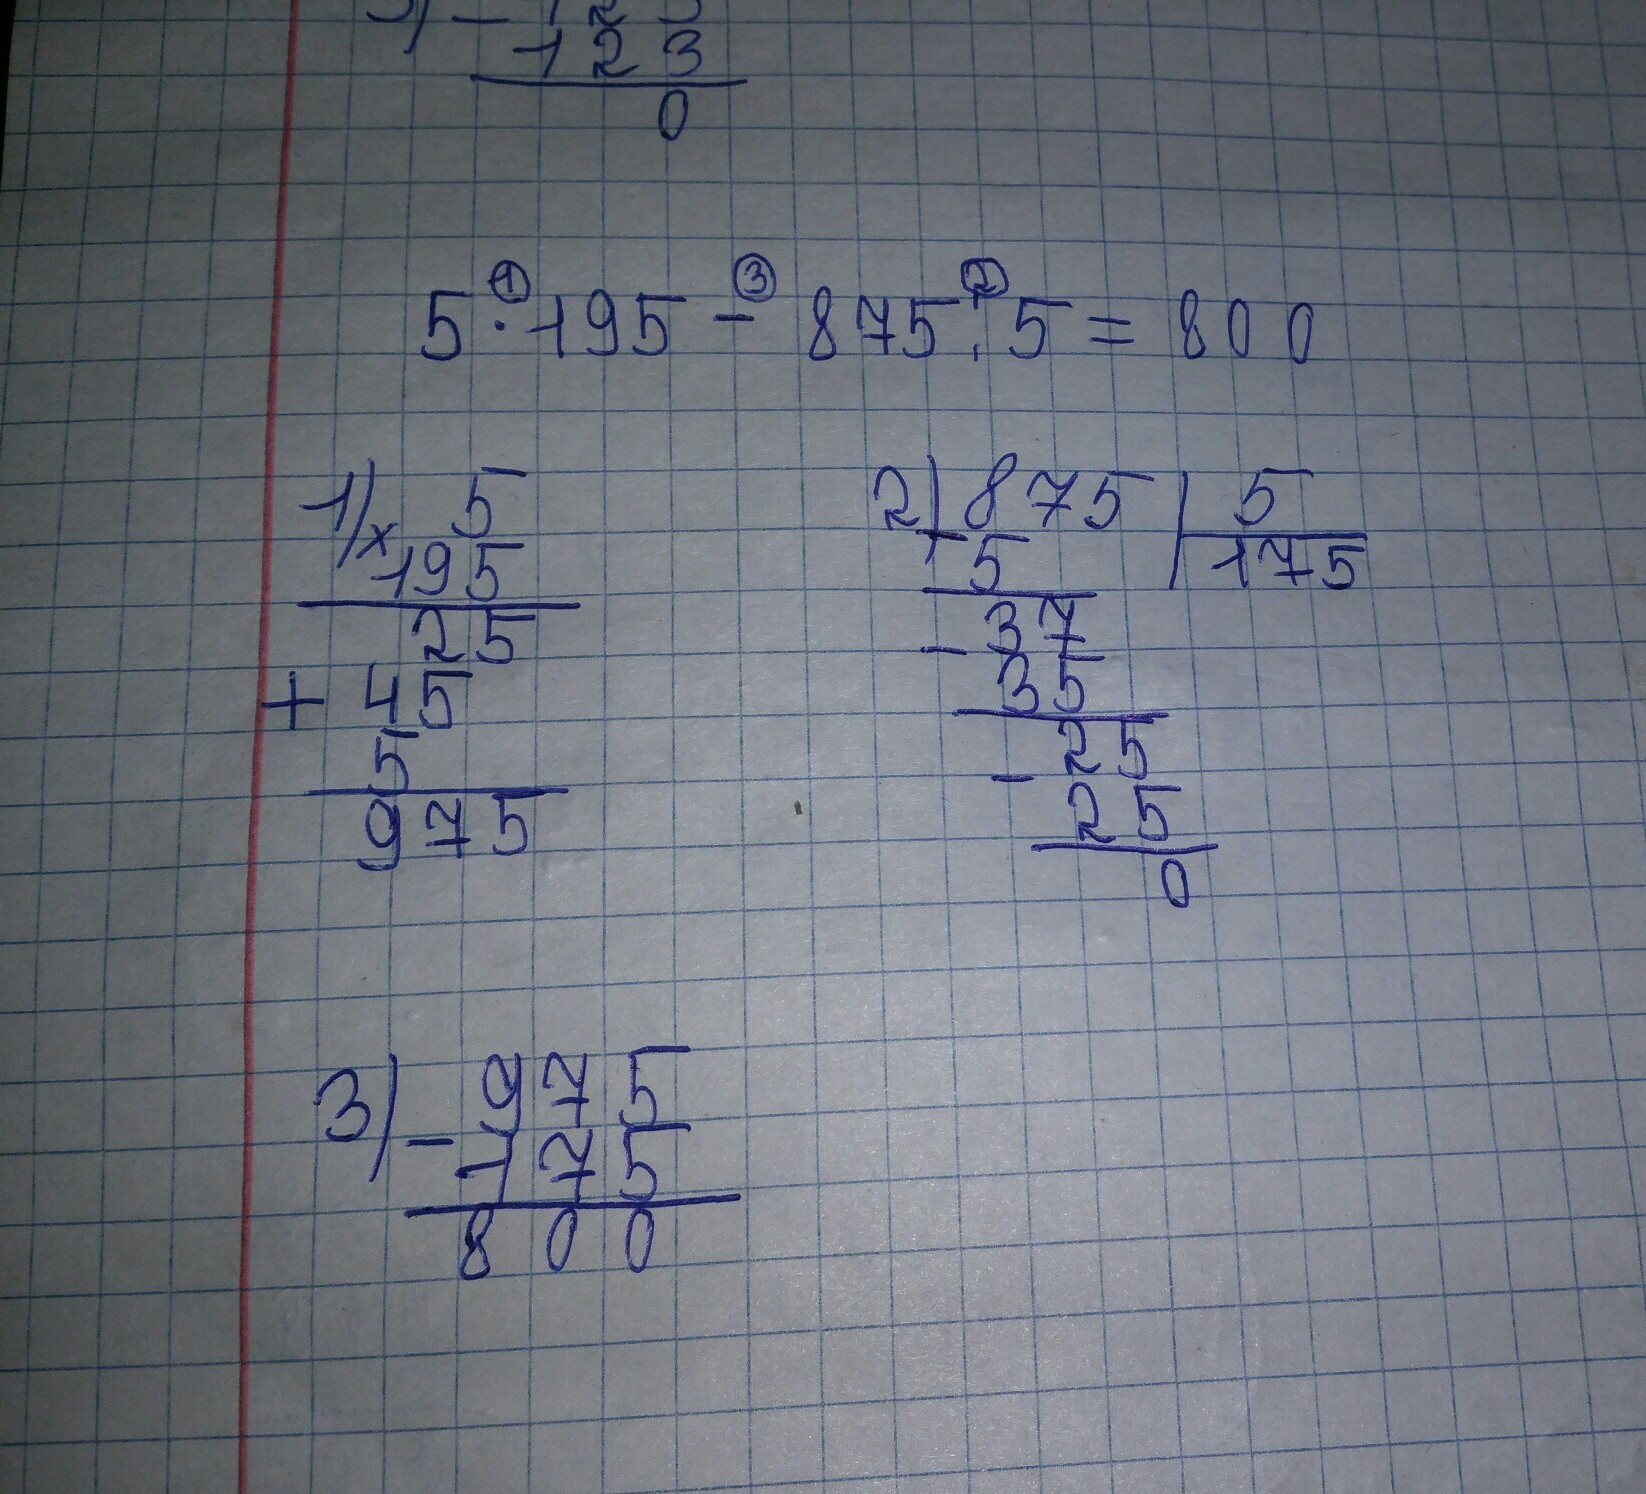 123
0
5 · 195 - 875 : 5 = 800
① ③ ②
1) × 5
195
25
+ 45
5
975
2) 875 | 5
- 5 | 175
- 37
35
- 25
25
0
3) - 975
175
800